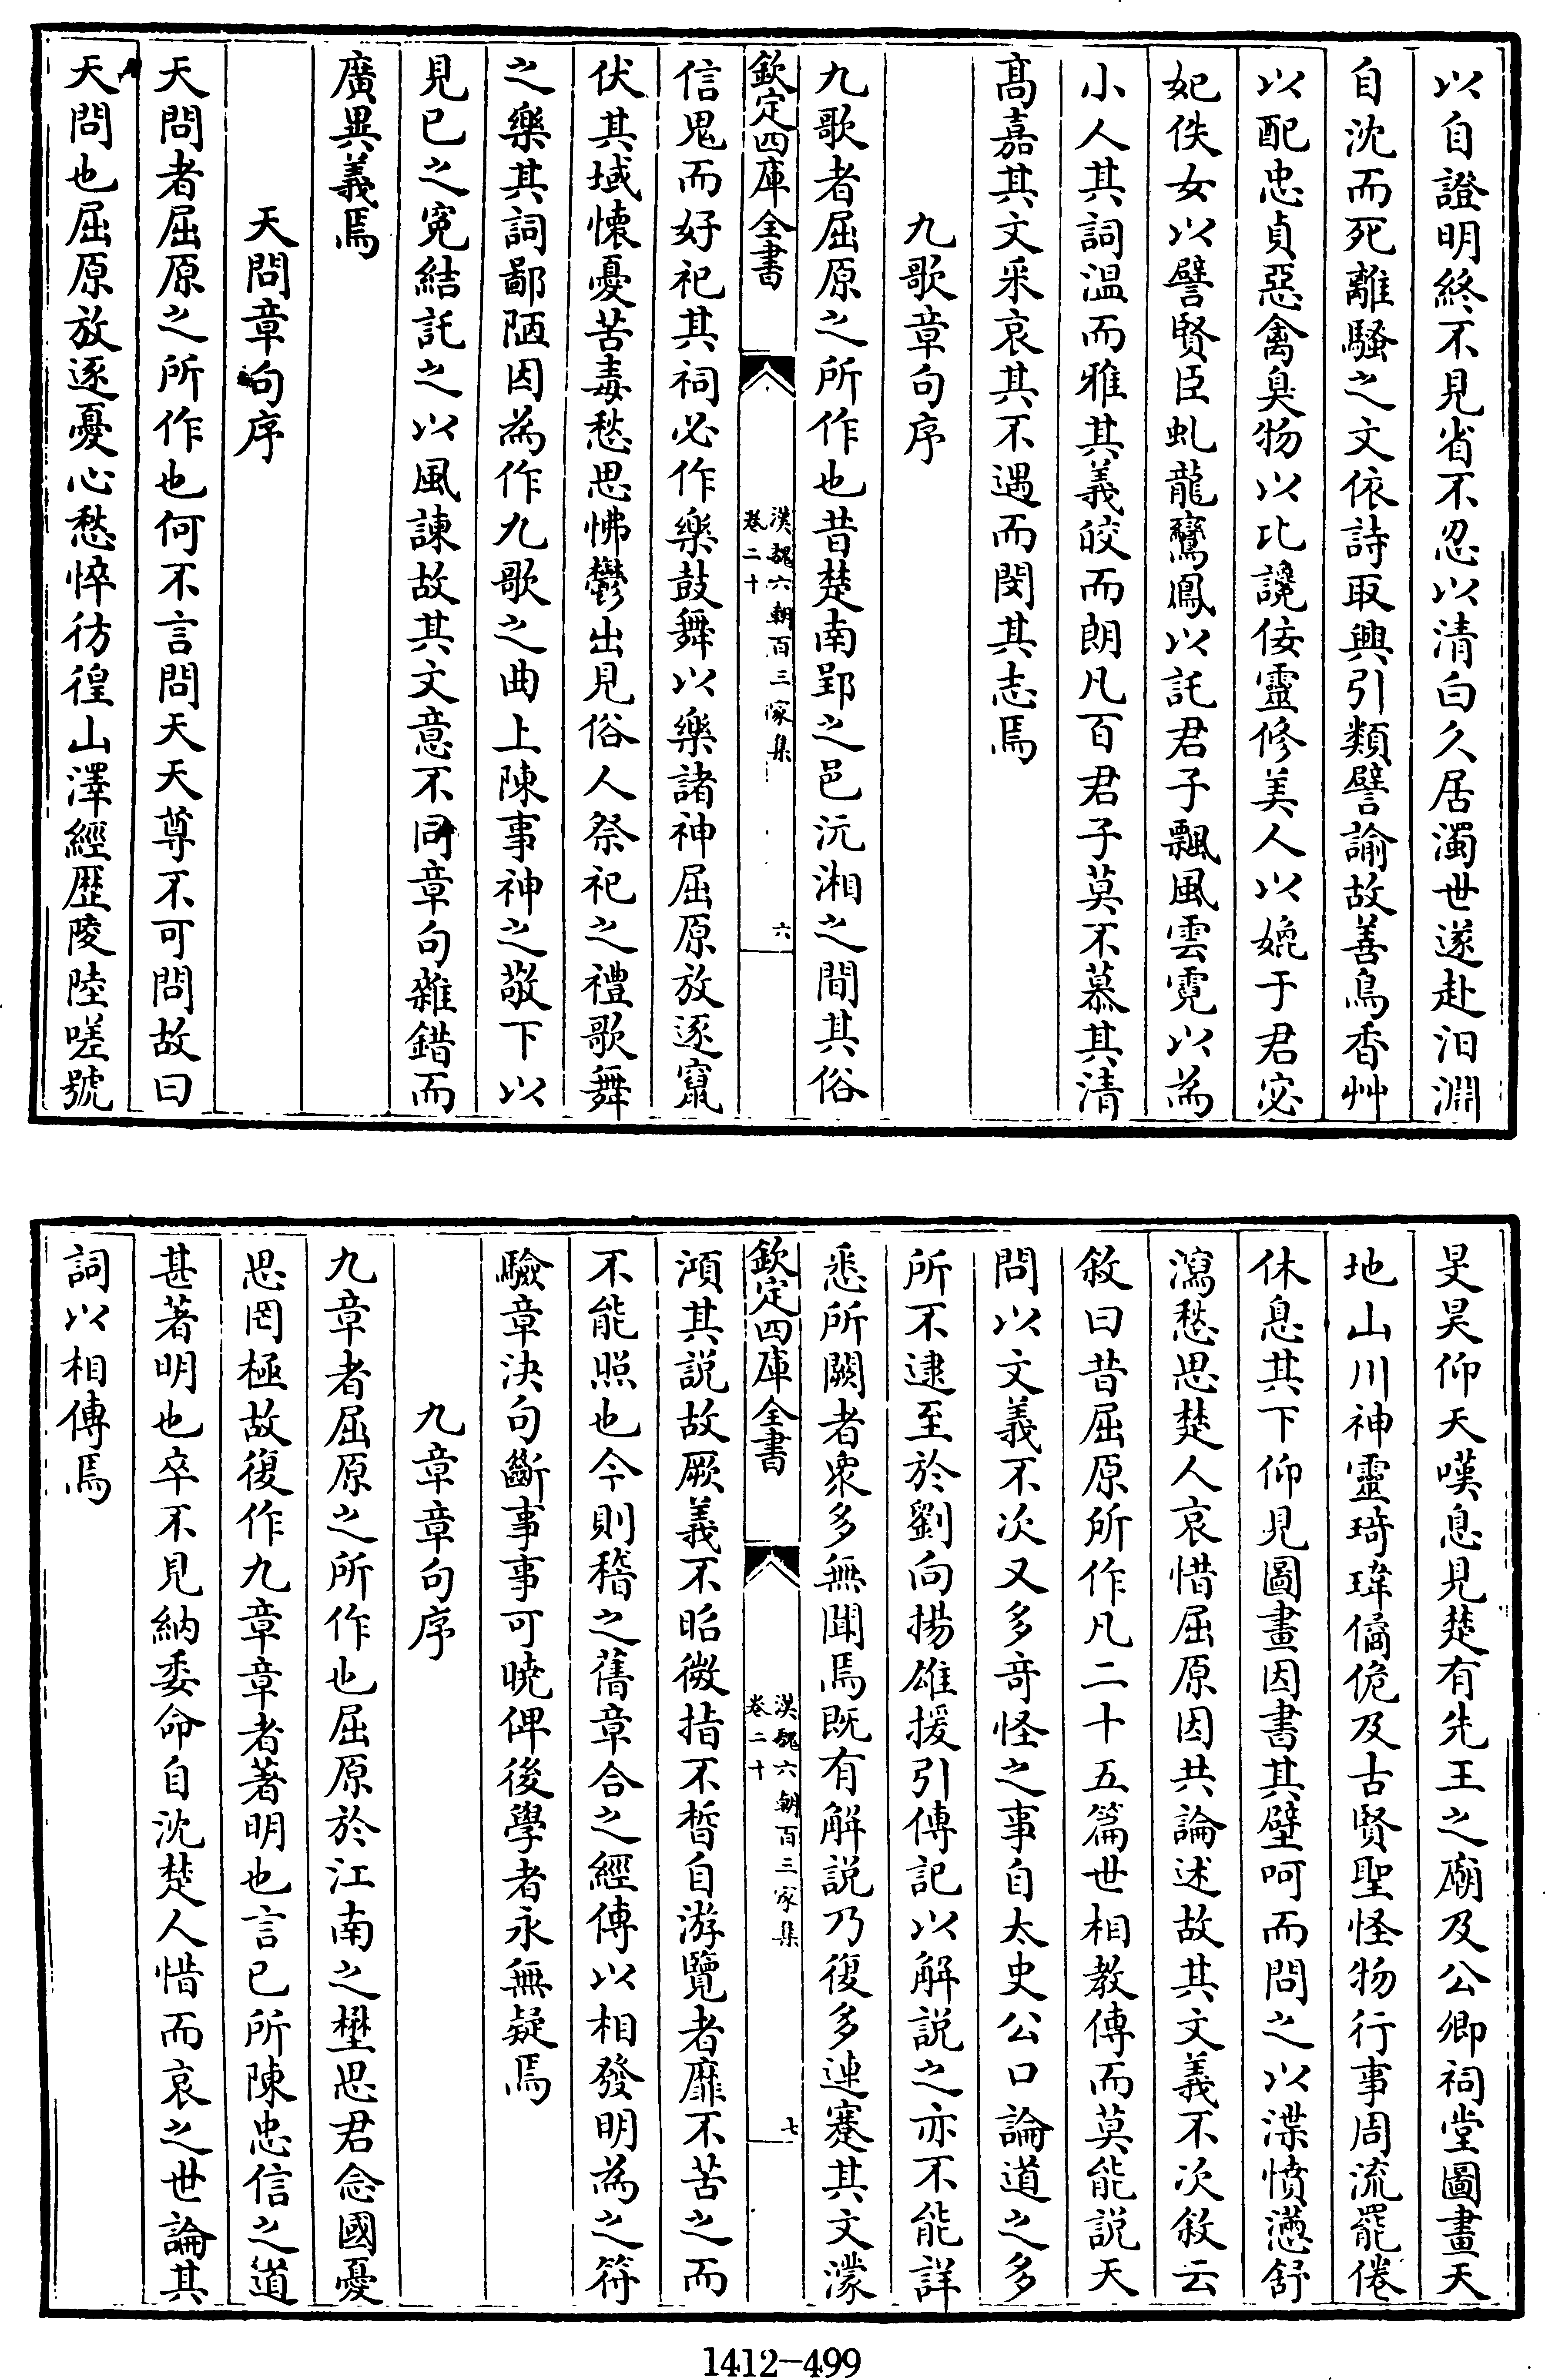 以自證明終不見省不忍以清白久居濁世遂赴汨淵
自沈而死離騷之文依詩取興引類譬諭故善鳥香艸
以配忠貞惡禽臭物以比讒佞靈修美人以媲于君宓
妃佚女以譬賢臣虬龍鸞鳳以託君子飄風雲霓以為
小人其詞温而雅其義皎而朗凡百君子莫不慕其清
髙嘉其文采哀其不遇而閔其志焉
九歌章句序
九歌者屈原之所作也昔楚南郢之邑沅湘之間其俗
欽定四庫全書
漢魏六朝百三家集
卷二十
六
信鬼而好祀其祠必作樂鼓舞以樂諸神屈原放逐竄
伏其域懐憂苦毒愁思怫鬱出見俗人祭祀之禮歌舞
之樂其詞鄙陋因為作九歌之曲上陳事神之敬下以
見已之寃結託之以風諫故其文意不同章句雜錯而
廣異義焉
天問章句序
天問者屈原之所作也何不言問天天尊不可問故曰
天問也屈原放逐憂心愁悴彷徨山澤經歴陵陸嗟號
旻昊仰天嘆息見楚有先王之廟及公卿祠堂圖畫天
地山川神靈琦瑋僪佹及古賢聖怪物行事周流罷倦
休息其下仰見圖畫因書其壁呵而問之以渫憤懣舒
瀉愁思楚人哀惜屈原因共論述故其文義不次敘云
敘曰昔屈原所作凡二十五篇世相教傳而莫能説天
問以文義不次又多竒怪之事自太史公口論道之多
所不逮至於劉向揚雄援引傳記以解説之亦不能詳
悉所闕者衆多無聞焉既有解説乃復多連蹇其文濛
欽定四庫全書
漢魏六朝百三家集
卷二十
七
澒其説故厥義不昭微指不晳自游覽者靡不苦之而
不能照也今則稽之舊章合之經傳以相發明為之符
驗章決句斷事事可曉俾後學者永無疑焉
九章章句序
九章者屈原之所作也屈原於江南之壄思君念國憂
思罔極故復作九章章者著明也言已所陳忠信之道
甚著明也卒不見納委命自沈楚人惜而哀之世論其
詞以相傳焉
1412-499